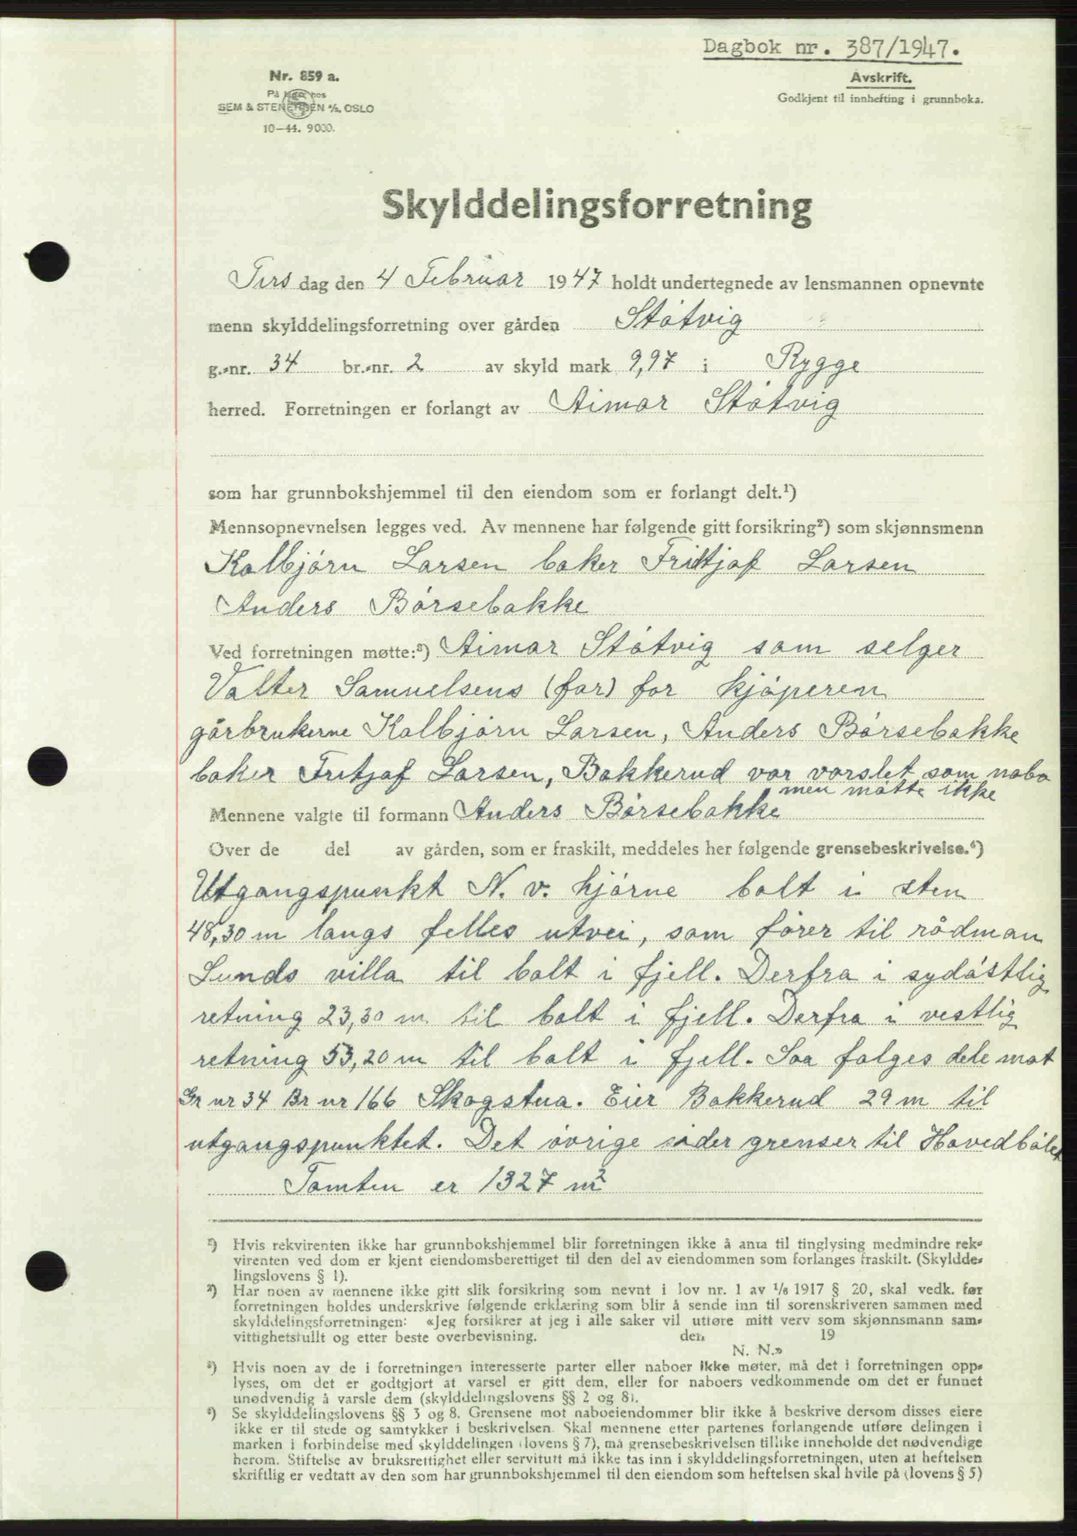 Dagbok nr. 387/1947.
Nr. 859 a.
På lager hos
SEM & STENERSEN A/S, OSLO
10—44. 9000.
Avskrift.
Godkjent til innhefting i grunnboka.
Skylddelingsforretning
Tirsdag den 4 Februar 1947 holdt undertegnede av lensmannen opnevnte
menn skylddelingsforretning over gården Støtvig
g.-nr. 34 br.-nr. 2 av skyld mark 9,97 i Rygge
herred. Forretningen er forlangt av Aimar Støtvig
som har grunnbokshjemmel til den eiendom som er forlangt delt.¹)
Mennsopnevnelsen legges ved. Av mennene har følgende gitt forsikring²) som skjønnsmenn
Kolbjørn Larsen baker Fritjof Larsen
Anders Børsebakke
Ved forretningen møtte:³) Aimar Støtvig som selger
Valter Samuelsens (far) for kjøperen
gårbrukerne Kolbjørn Larsen, Anders Børsebakke
baker Fritjof Larsen, Bakkerud var varslet som nabo
men møtte ikke
Mennene valgte til formann Anders Børsebakke
Over de del av gården, som er fraskilt, meddeles her følgende grensebeskrivelse.⁴)
Utgangspunkt N. v. hjørne bolt i sten
48,30 m langs felles utvei, som fører til rådman
Lunds villa til bolt i fjell. Derfra i sydøstlig
retning 23,30 m til bolt i fjell. Derfra i vestlig
retning 53,20 m til bolt i fjell. Saa følges dele mot
Gr nr 34 Br nr 166 Skogstua. Eier Bakkerud 29 m til
utgangspunktet. Det øvrige sider grenser til Hovedbølet
Tomten er 1327 m²
¹) Hvis rekvirenten ikke har grunnbokshjemmel blir forretningen ikke å anta til tinglysing medmindre rek-
virenten ved dom er kjent eiendomsberettiget til den del av eiendommen som forlanges fraskilt. (Skyldde-
lingslovens § 1).
²) Har noen av mennene ikke gitt slik forsikring som nevnt i lov nr. 1 av 1/6 1917 § 20, skal vedk. før
forretningen holdes underskrive følgende erklæring som blir å sende inn til sorenskriveren sammen med
skylddelingsforretningen: «Jeg forsikrer at jeg i alle saker vil utføre mitt verv som skjønnsmann sam-
vittighetsfullt og etter beste overbevisning. den 19
N. N.»
³) Hvis noen av de i forretningen interesserte parter eller naboer ikke møter, må det i forretningen opp-
lyses, om det er godtgjort at varsel er gitt dem, eller for naboers vedkommende om det er funnet
unødvendig å varsle dem (skylddelingslovens §§ 2 og 8).
⁴) Se skylddelingslovens §§ 3 og 8. Grensene mot naboeiendommer blir ikke å beskrive dersom disses eiere
ikke er til stede og samtykker i beskrivelsen. Skal mennene etter partenes forlangende utføre delingen i
marken i forbindelse med skylddelingen (lovens § 7), må grensebeskrivelsen tillike inneholde det nødvendige
herom. Stiftelse av bruksrettighet eller servitutt må ikke tas inn i skylddelingsforretningen, uten at heftelsen
skriftlig er vedtatt av den som har grunnbokshjemmel til den eiendom som heftelsen skal hvile på (lovens § 5)